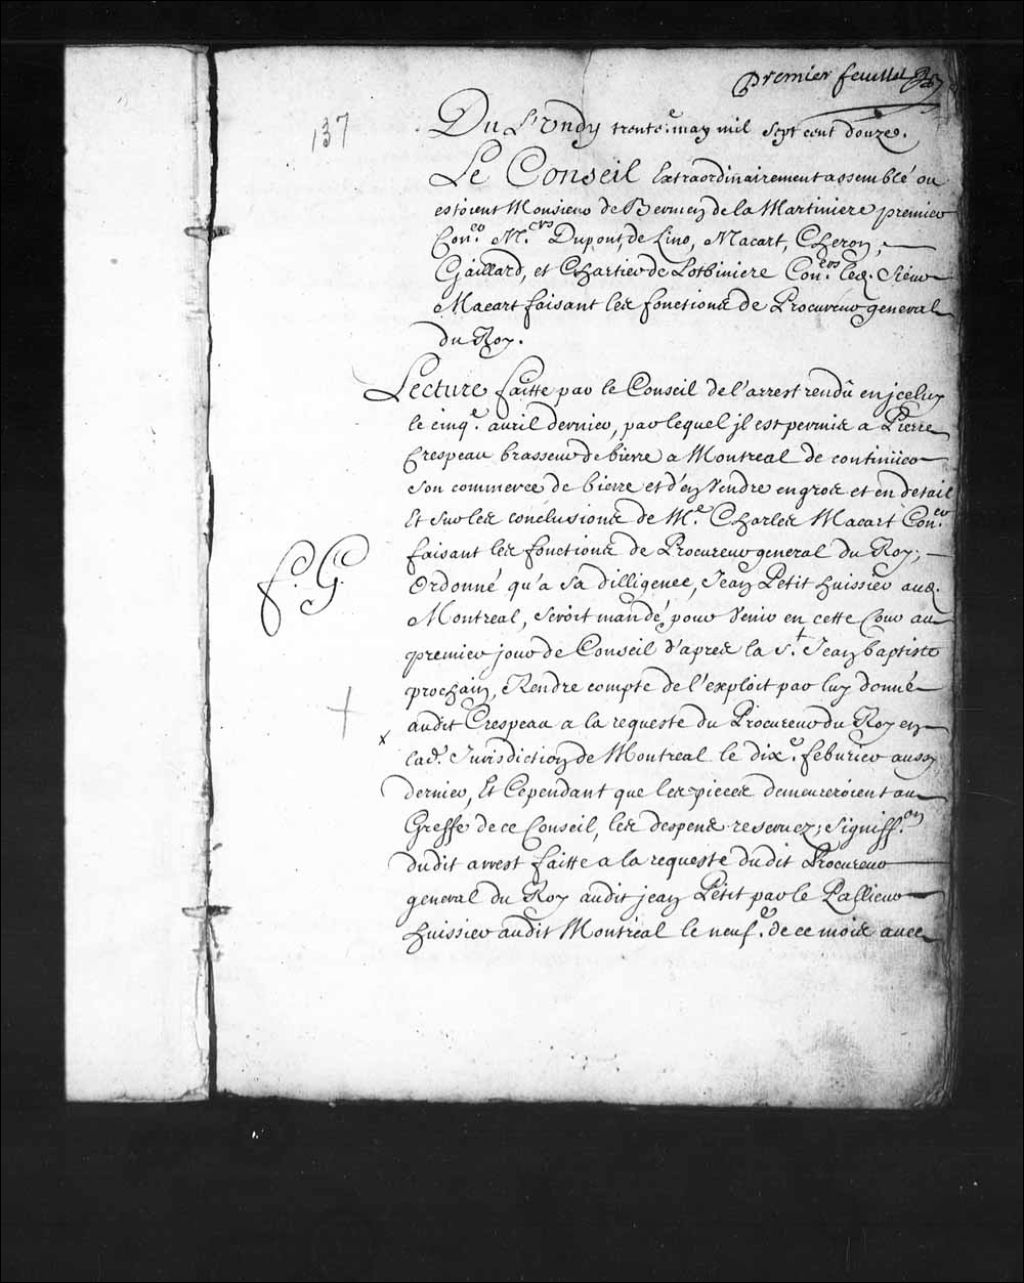 premier feuillet
137
Du Lundy trente.e may mil sept cent douze.
Le Conseil Extraordinairement assemblé ou
estoient Monsieur de Bermen de la Martiniere premier
Con.er M.rs Dupont, de Lino, Macart, Cheron,
Gaillard, et Chartier de Lotbiniere Con.ers led. Sieur
Macart faisant les fonctions de Procureur general
du Roy.
Lecture faitte par le Conseil de l'arrest rendû en jceluy
le cinq.e auril dernier, par lequel jl est permis a Pierre
Crespeau brasseur de bierre a Montreal de continüer
son commerce de bierre et d'en Vendre en gros et en detail
Et sur les conclusions de M.e Charles Macart Con.er
faisant les fonctions de Procureur general du Roy;
Ordonné qu'a sa dilligence, Jean Petit huissier aud.
F. G.
Montreal, seroit mandé pour Venir en cette Cour au
premier jour de Conseil d'apres la S.t Jean baptiste
prochain, Rendre compte de l'exploit par luy donné
audit Crespeau a la requeste du Procureur du Roy en
x
lad. Jurisdiction de Montreal le dix.e feburier aussy
dernier, Et Cependant que les pieces demeureroient au
Greffe de ce Conseil, les despens reseruez; signiff.on
dudit arrest faitte a la requeste dudit Procureur
general du Roy audit jean Petit par le Pallieur
huissier audit Montréal le neuf.e de ce mois auec